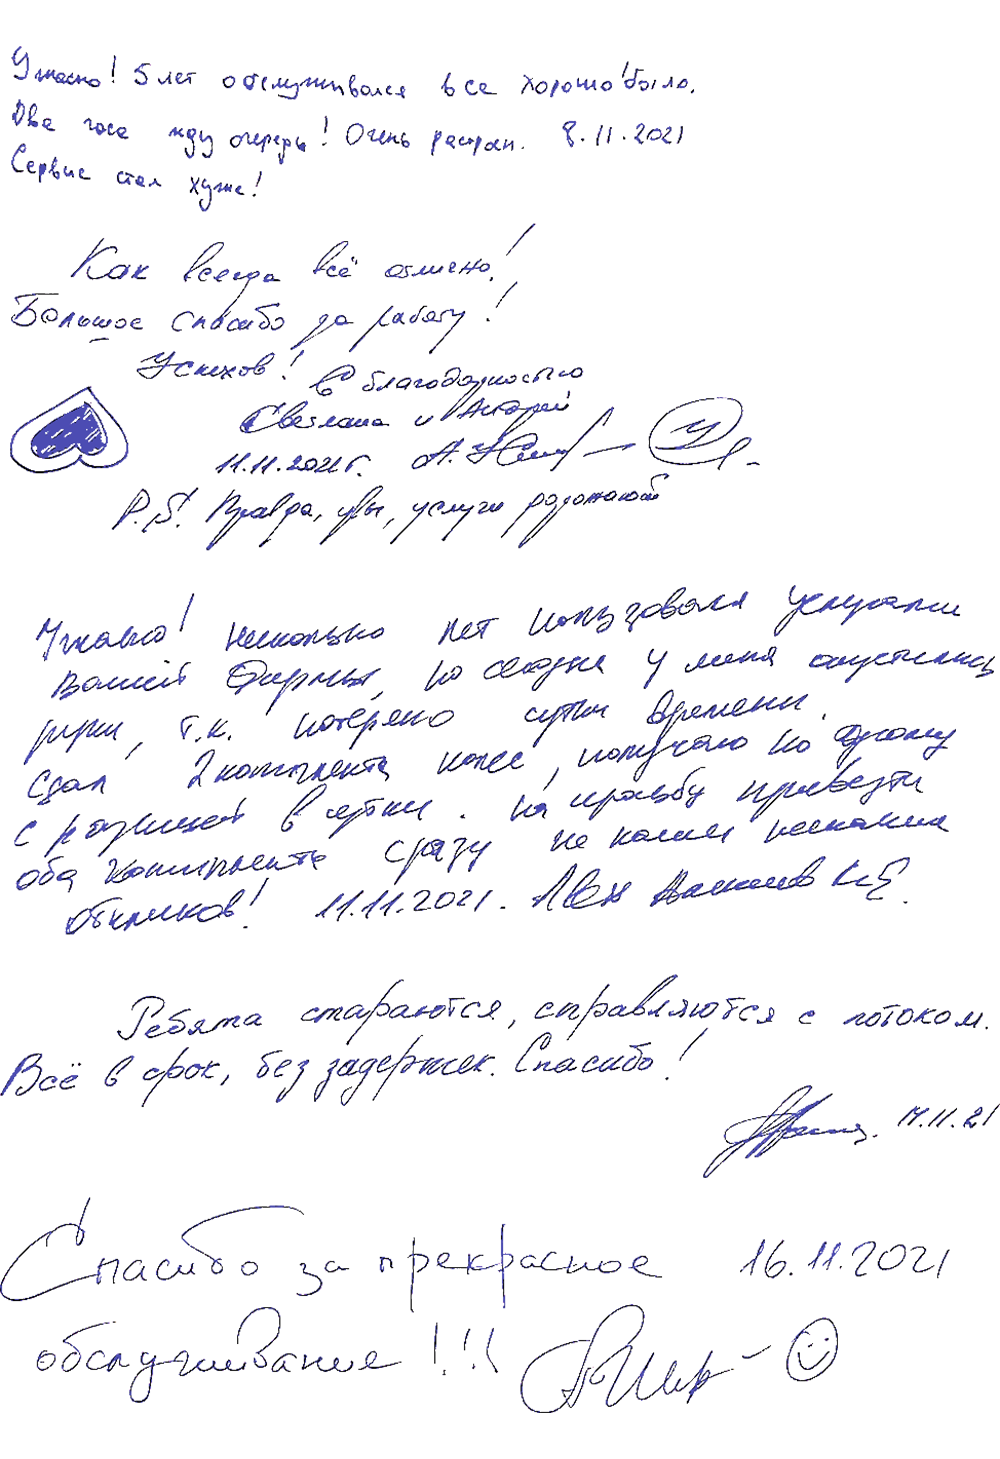 Ужасно! 5 лет обслуживался все хорошо было.
Два часа жду очередь! Очень расстроен. 8.11.2021
Сервис стал хуже!
Как всегда всё отлично!
Большое спасибо за работу!
Успехов! С благодарностью
Светлана и Андрей
11.11.2021г.
P.S! Правда, увы, услуги дорожают
Ужасно! Несколько лет пользовался услугами
Вашей Фирмы, но сегодня у меня опустились
руки, т.к. потеряно сутки времени.
Сдал 2 комплекта колес, получаю по одному
с разницей в сутки. На просьбу привезти
оба комплекта сразу не нашли никаких
откликов! 11.11.2021.
Ребята стараются, справляются с потоком.
Всё в срок, без задержек. Спасибо!
14.11.21
Спасибо за прекрасное 16.11.2021
обслуживание!!!